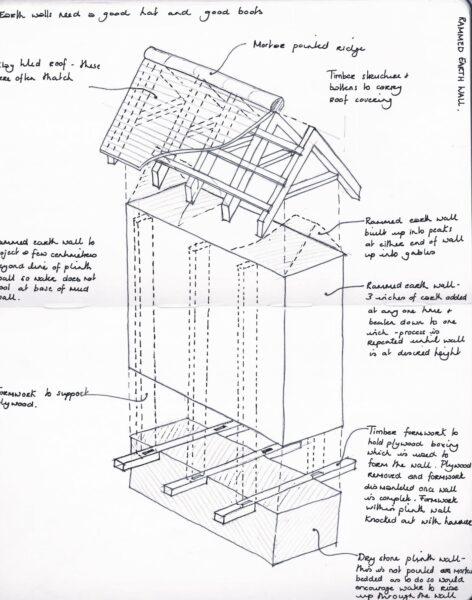 Earth walls need a good hat and good boots
RAMMED EARTH WALL.
Mortar pointed ridge
lay tiled roof - these
ere often thatch
Timber structure +
battens to carry
roof covering
Rammed earth wall
built up into peaks
at either end of wall
up into gables
ammed earth wall to
oject a few centimetres
eyond line of plinth
all so water does not
ool at base of mud
all.
Rammed earth wall -
3 inches of earth added
at any one time &
beaten down to one
inch - process is
repeated until wall
is at desired height
ormwork to support
lywood.
Timber formwork to
hold plywood boxing
which is used to
form the wall. Plywood
removed and formwork
dismantled once wall
is complete. Formwork
within plinth wall
knocked out with hammer
Dry stone plinth wall -
this is not pointed or mortar
bedded as to do so would
encourage water to rise
up through the wall